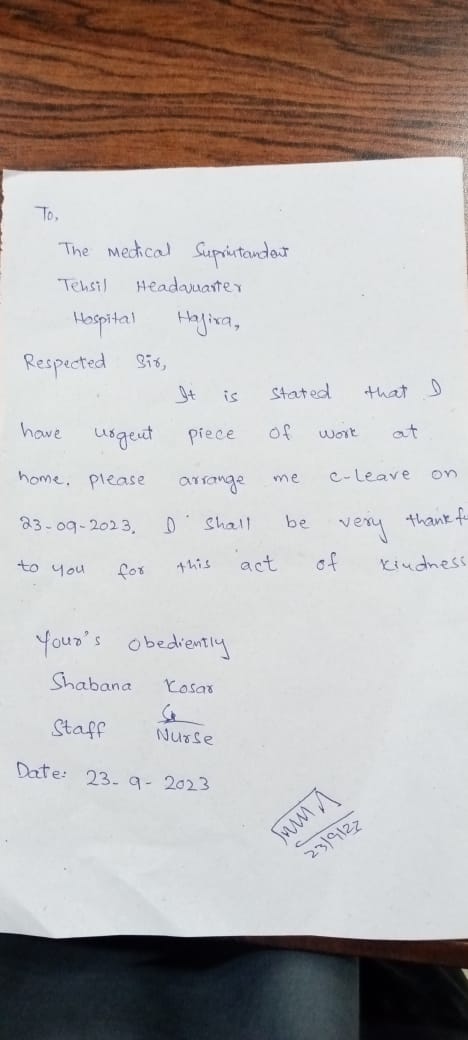 To,
The Medical Suprintandent
Tehsil Headquarter
Hospital Hajira,
Respected Sir,
It is stated that I
have urgent piece of work at
home. please arrange me c-leave on
23-09-2023. I shall be very thankfu
to you for this act of kindness
Your's obediently
Shabana Kosar
Staff Nurse
Date: 23-9-2023
23/9/23